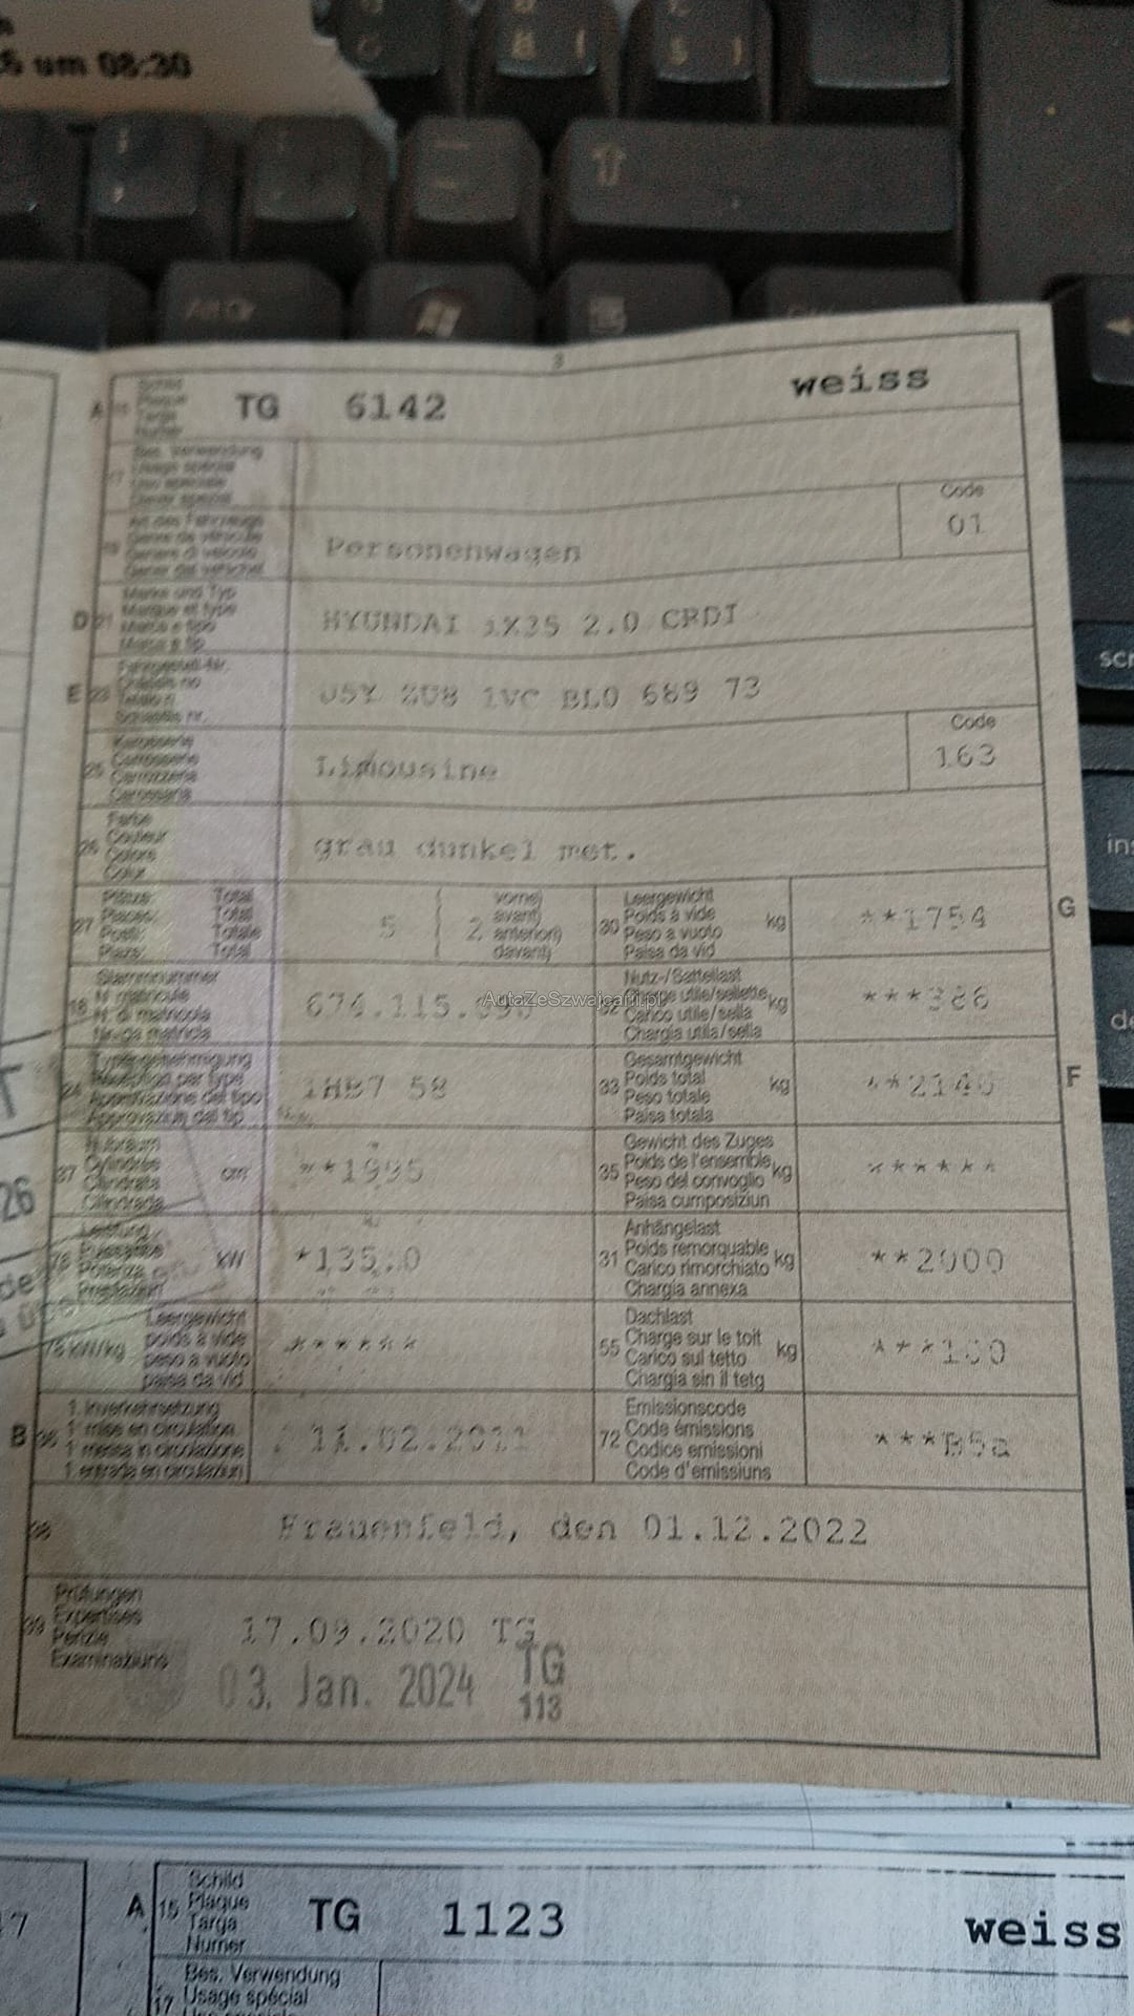 um 08:30
Alt Gr
3
A 15 Schild
Plaque
Targa
Numer
TG 6142 weiss
17 Bes. Verwendung
Usage spécial
Code
01
19 Art des Fahrzeugs
Genre de véhicule
Genere di veicolo
Personenwagen
D 21 Marke und Typ
Marque et type
Marca e tipo
Marca e tip
HYUNDAI iX35 2.0 CRDI
E 23 Fahrgestell-Nr.
Châssis no
Telaio n.
Schassis nr.
U5Y ZU8 1VC BL0 689 73
25 Karosserie
Carrosserie
Carrozzeria
Carossaria
Limousine
Code
163
26 Farbe
Couleur
Colore
Colur
grau dunkel met.
27 Plätze: Total
Places: Total
Posti: Totale
Plazs: Total
5 ( 2 vorne)
avant)
anteriori)
davant)
30 Leergewicht
Poids à vide
Peso a vuoto
Paisa da vid
kg
**1754
G
18 Stammnummer
N matricule
N. di matricola
Nr. da matricla
674.115.
AutaZeSzwajcarii.pl
32 Nutz-/Sattellast
Charge utile/sellette
Carico utile/sella
Chargia utila/sella
kg
***386
24 Typengenehmigung
Réception par type
Approvazione del tipo
Approvaziun dal tip
1HB7 58
33 Gesamtgewicht
Poids total
Peso totale
Paisa totala
kg
**2140
F
37 Hubraum
Cylindrée
Cilindrata
Cilindrada
cm
**1995
35 Gewicht des Zuges
Poids de l'ensemble
Peso del convoglio
Paisa cumposiziun
kg
******
76 Leistung
Puissance
Potenza
Prestaziun
kW
*135.0
31 Anhängelast
Poids remorquable
Carico rimorchiato
Chargia annexa
kg
**2000
78 kW/kg Leergewicht
poids à vide
peso a vuoto
paisa da vid
******
55 Dachlast
Charge sur le toit
Carico sul tetto
Chargia sin il tetg
kg
***100
B 36 1. Inverkehrsetzung
1 mise en circulation
1 messa in circolazione
1 entrada en circulaziun
11.02.2011
72 Emissionscode
Code émissions
Codice emissioni
Code d'emissiuns
***B5a
38
Frauenfeld, den 01.12.2022
39 Prüfungen
Expertises
Perizie
Examinaziuns
17.09.2020 TG
03. Jan. 2024 TG
113
26
A 15 Schild
Plaque
Targa
Numer
TG 1123 weiss
17 Bes. Verwendung
Usage spécial